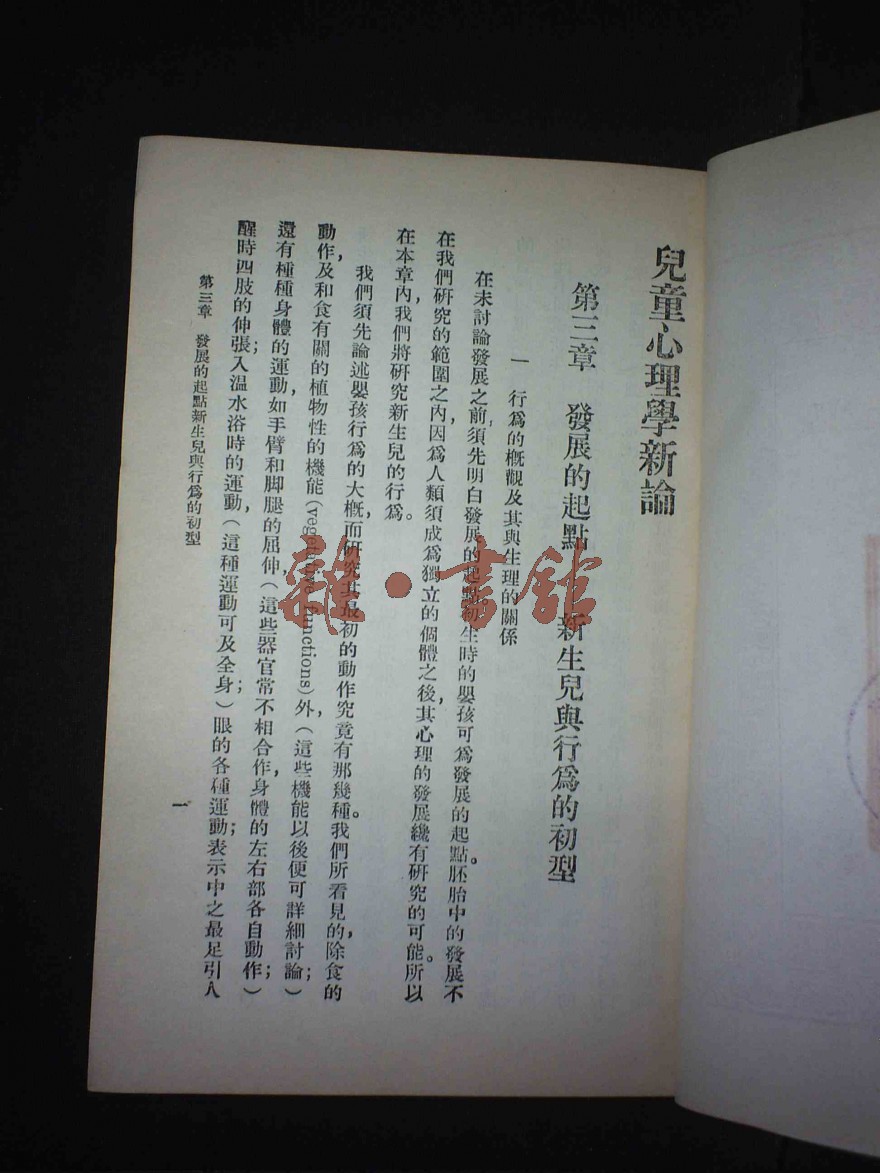 兒童心理學新論
第三章　發展的起點　新生兒與行爲的初型
一　行爲的概觀及其與生理的關係
在未討論發展之前，須先明白發展的起點。初生時的嬰孩可爲發展的起點。胚胎中的發展不
在我們研究的範圍之內，因爲人類須成爲獨立的個體之後，其心理的發展纔有研究的可能。所以
在本章內，我們將研究新生兒的行爲。
我們須先論述嬰孩行爲的大概，而研究其最初的動作究竟有那幾種。我們所看見的，除食的
動作，及和食有關的植物性的機能(vegetative functions)外，（這些機能以後便可詳細討論；）
還有種種身體的運動，如手臂和脚腿的屈伸，（這些器官常不相合作，身體的左右部各自動作；）
醒時四肢的伸張；入溫水浴時的運動，（這種運動可及全身；）眼的各種運動；表示中之最足引人
第三章　發展的起點新生兒與行爲的初型
一
雜·書館